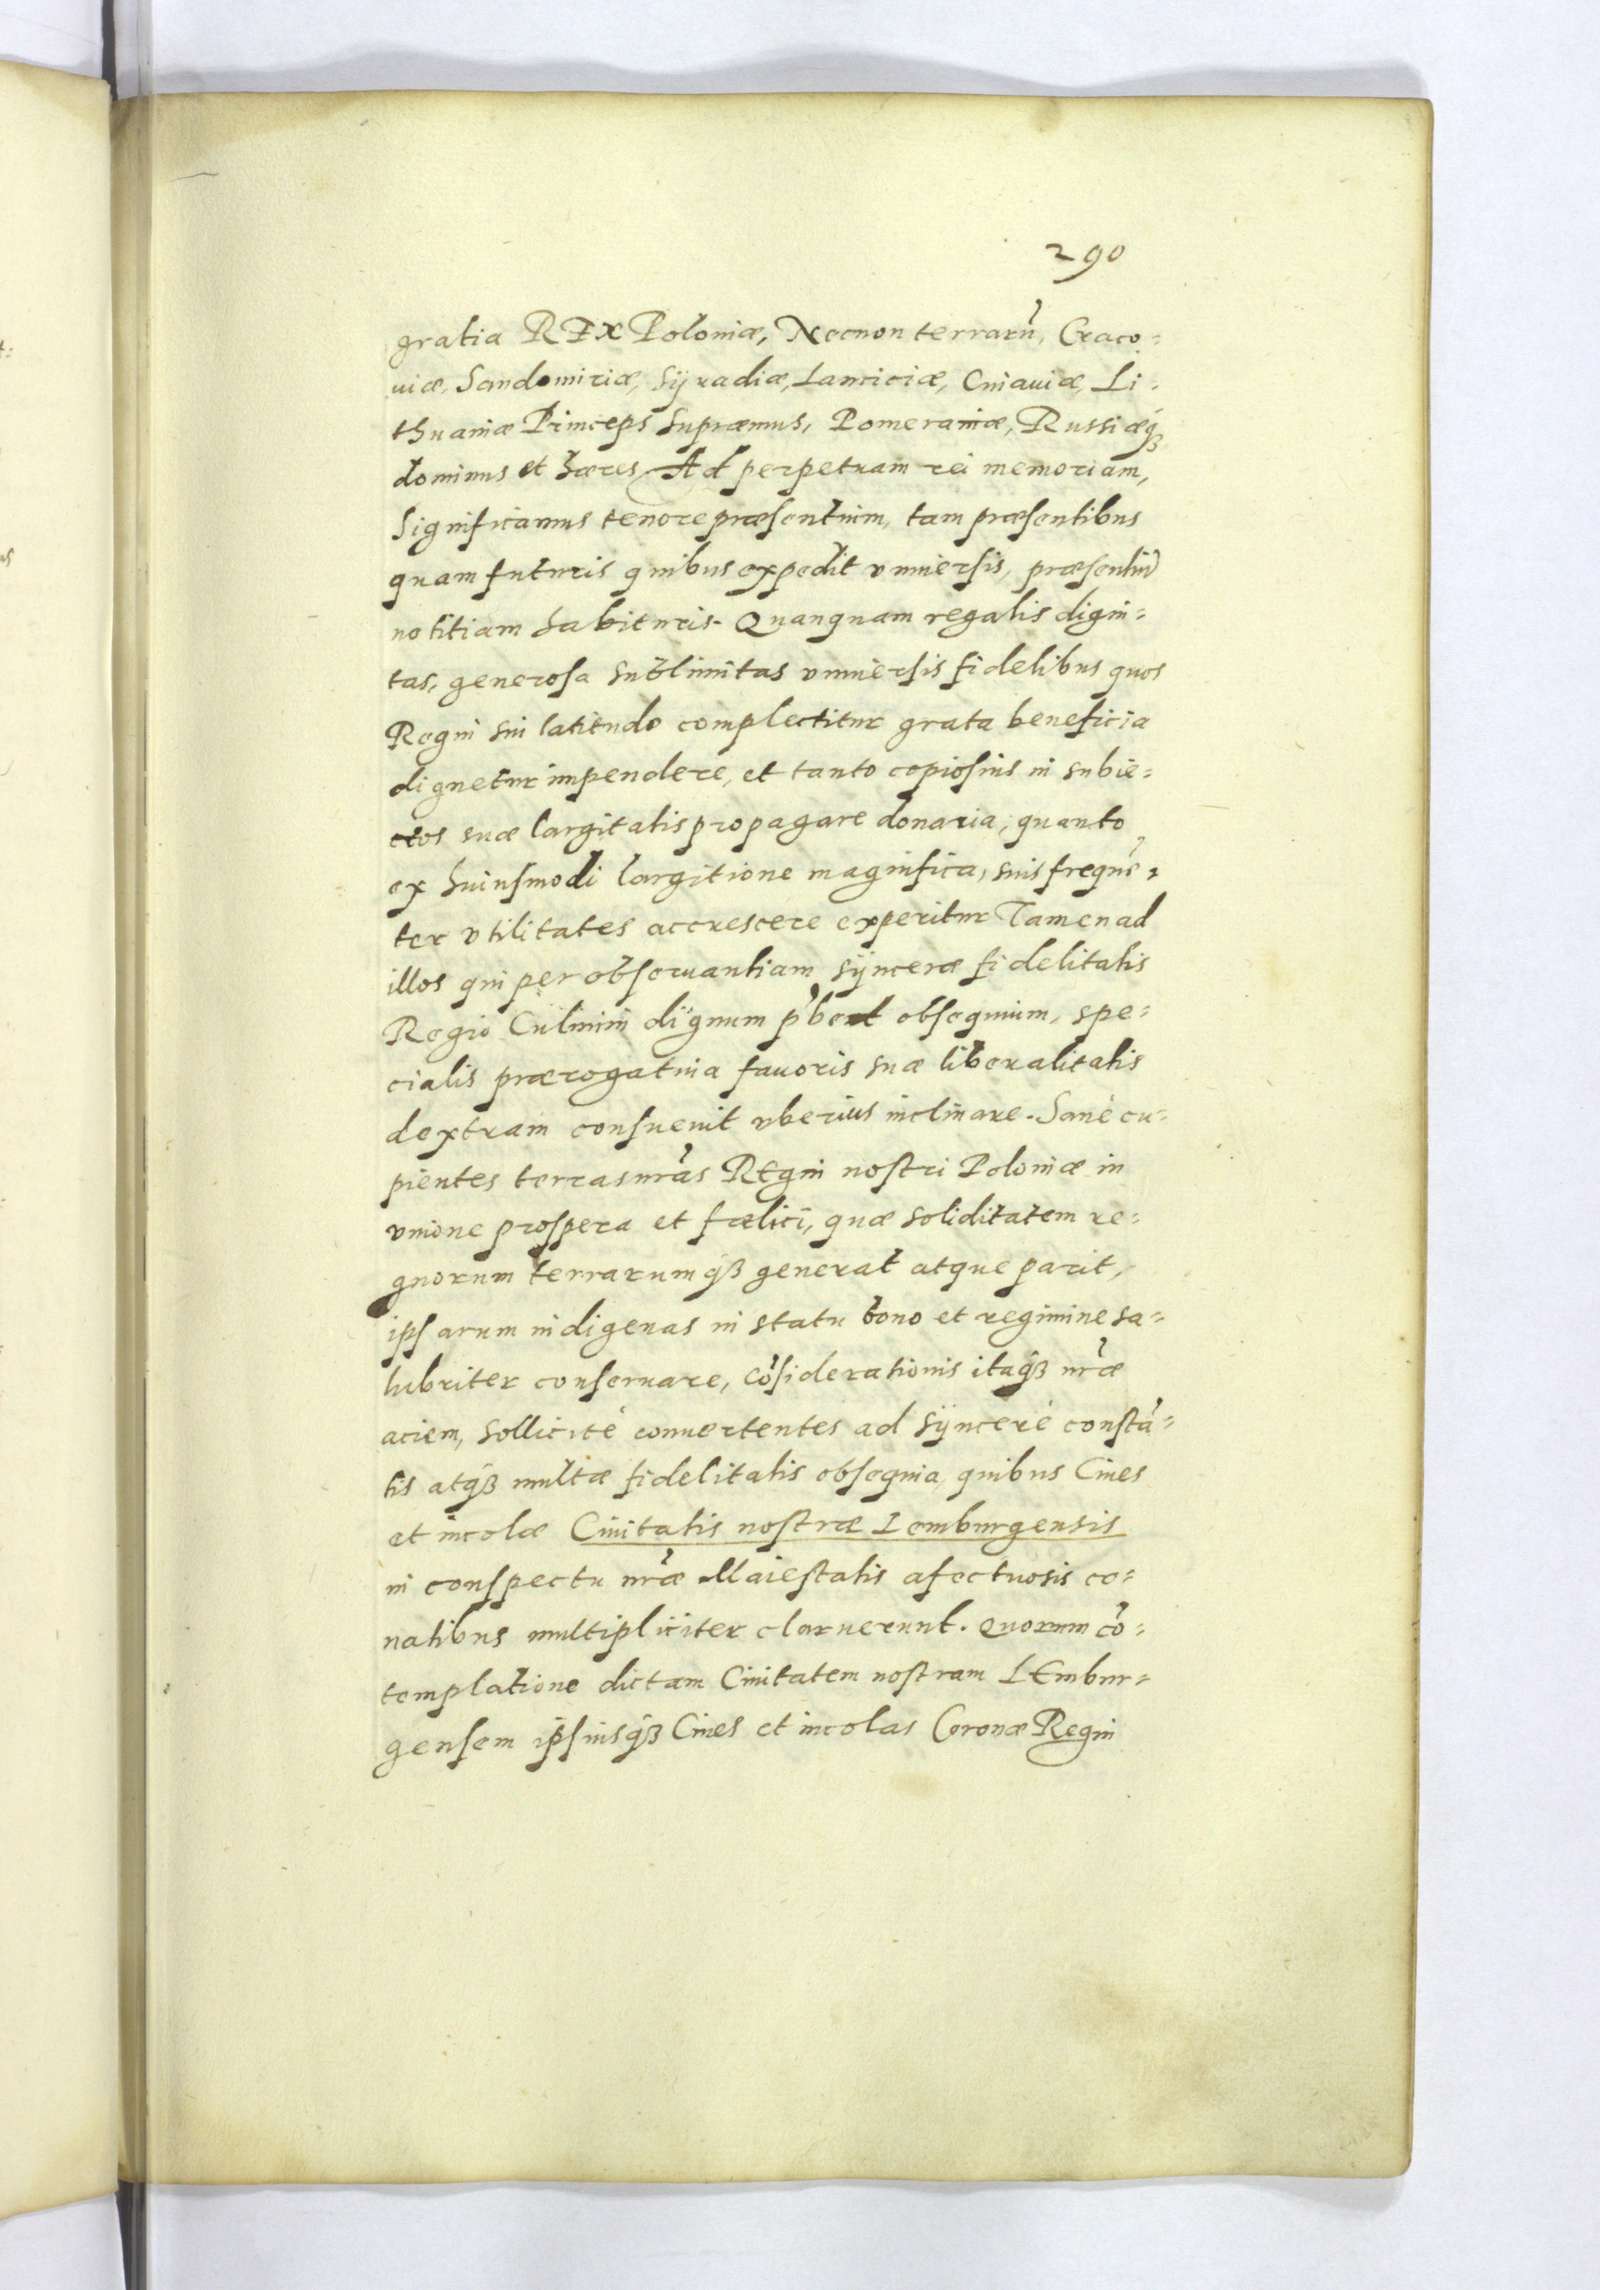 290
gratia REX Poloniæ, Necnon terrarũ, Craco-
uiæ, Sandomiriæ, Syradiæ, Lanciciæ, Cuiauiæ, Li-
thuaniæ Princeps Supræmus, Pomeraniæ, Russiæq́ꝫ
dominus et hæres Ad perpetuam rei memoriam,
Significamus tenore præsentium, tam præsentibus
quam futuris quibus expedit vniuersis, præsentiũ
notitiam habituris. Quanquam regalis digni=
tas, generosa sublimitas vniuersis fidelibus quos
Regni sui latitudo complectitur grata beneficia
dignetur impendere, et tanto copiosius in subie=
ctos suæ largitatis propagare donaria, quanto
ex huiusmodi largitione magnifica, suis frequẽ=
ter vtilitates accrescere experitur Tamen ad
illos qui per obseruantiam sÿnceræ fidelitatis
Regio Culmini dignum p̃bent obsequium, spe=
cialis prærogatiua fauoris suæ liberalitatis
dextram consueuit vberius inclinare. Sanè cu=
pientes terras nr̃as REgni nostri Poloniæ in
vnione prospera et fœlici, quæ soliditatem re=
gnorum terrarumq́ꝫ generat atque parit,
ipsarum indigenas in statu bono et regimine sa=
lubriter conseruare, cõsiderationis itaq́ꝫ nr̃æ
aciem, sollicitè conuertentes ad sÿncerè constã=
tis atq́ꝫ multæ fidelitatis obsequia quibus Ciues
et incolæ Ciuitatis nostræ Lemburgensis
in conspectu nr̃æ Maiestatis afectuosis co=
natibus multipliciter claruerunt. Quorum cõ=
templatione dictam Ciuitatem nostram LEmbur=
gensem ipsiusq́ꝫ Ciues et incolas Coronæ Regni